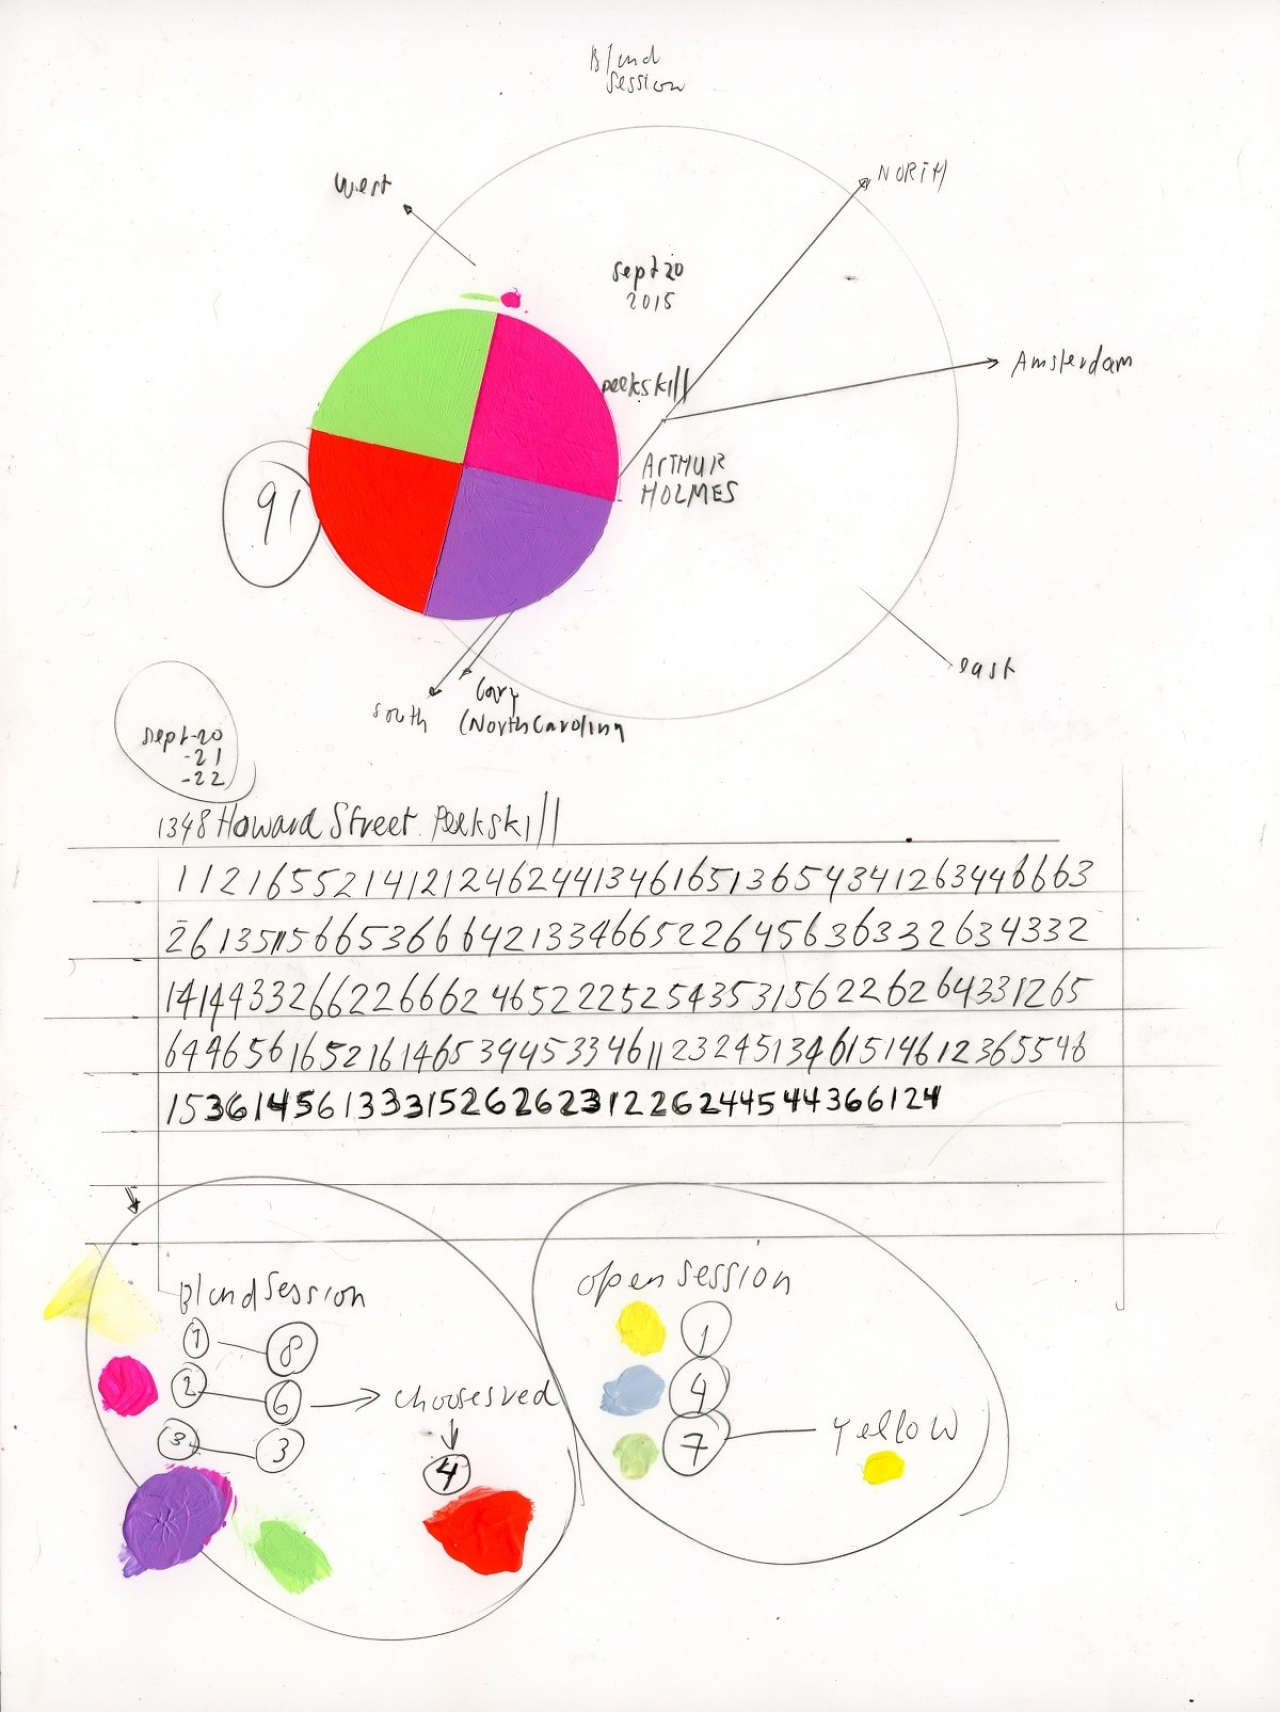 Blind
Session
West
NORTH
sept 20
2015
Amsterdam
peekskill
ARTHUR
HOLMES
91
east
south
Cary
(North Carolina
sept-20
-21
-22
1348 Howard Street Peekskill
11216552141212462441346165136543412634466663
261351156653666421334665226456363326343 32
14144332662266624652225254353156226264331265
644656165216146539453346112324513461514612365546
153614561333152626231226244544366124
Blind Session
1 8
2 6 chooses red
3 3
4
open session
1
4
7 yellow